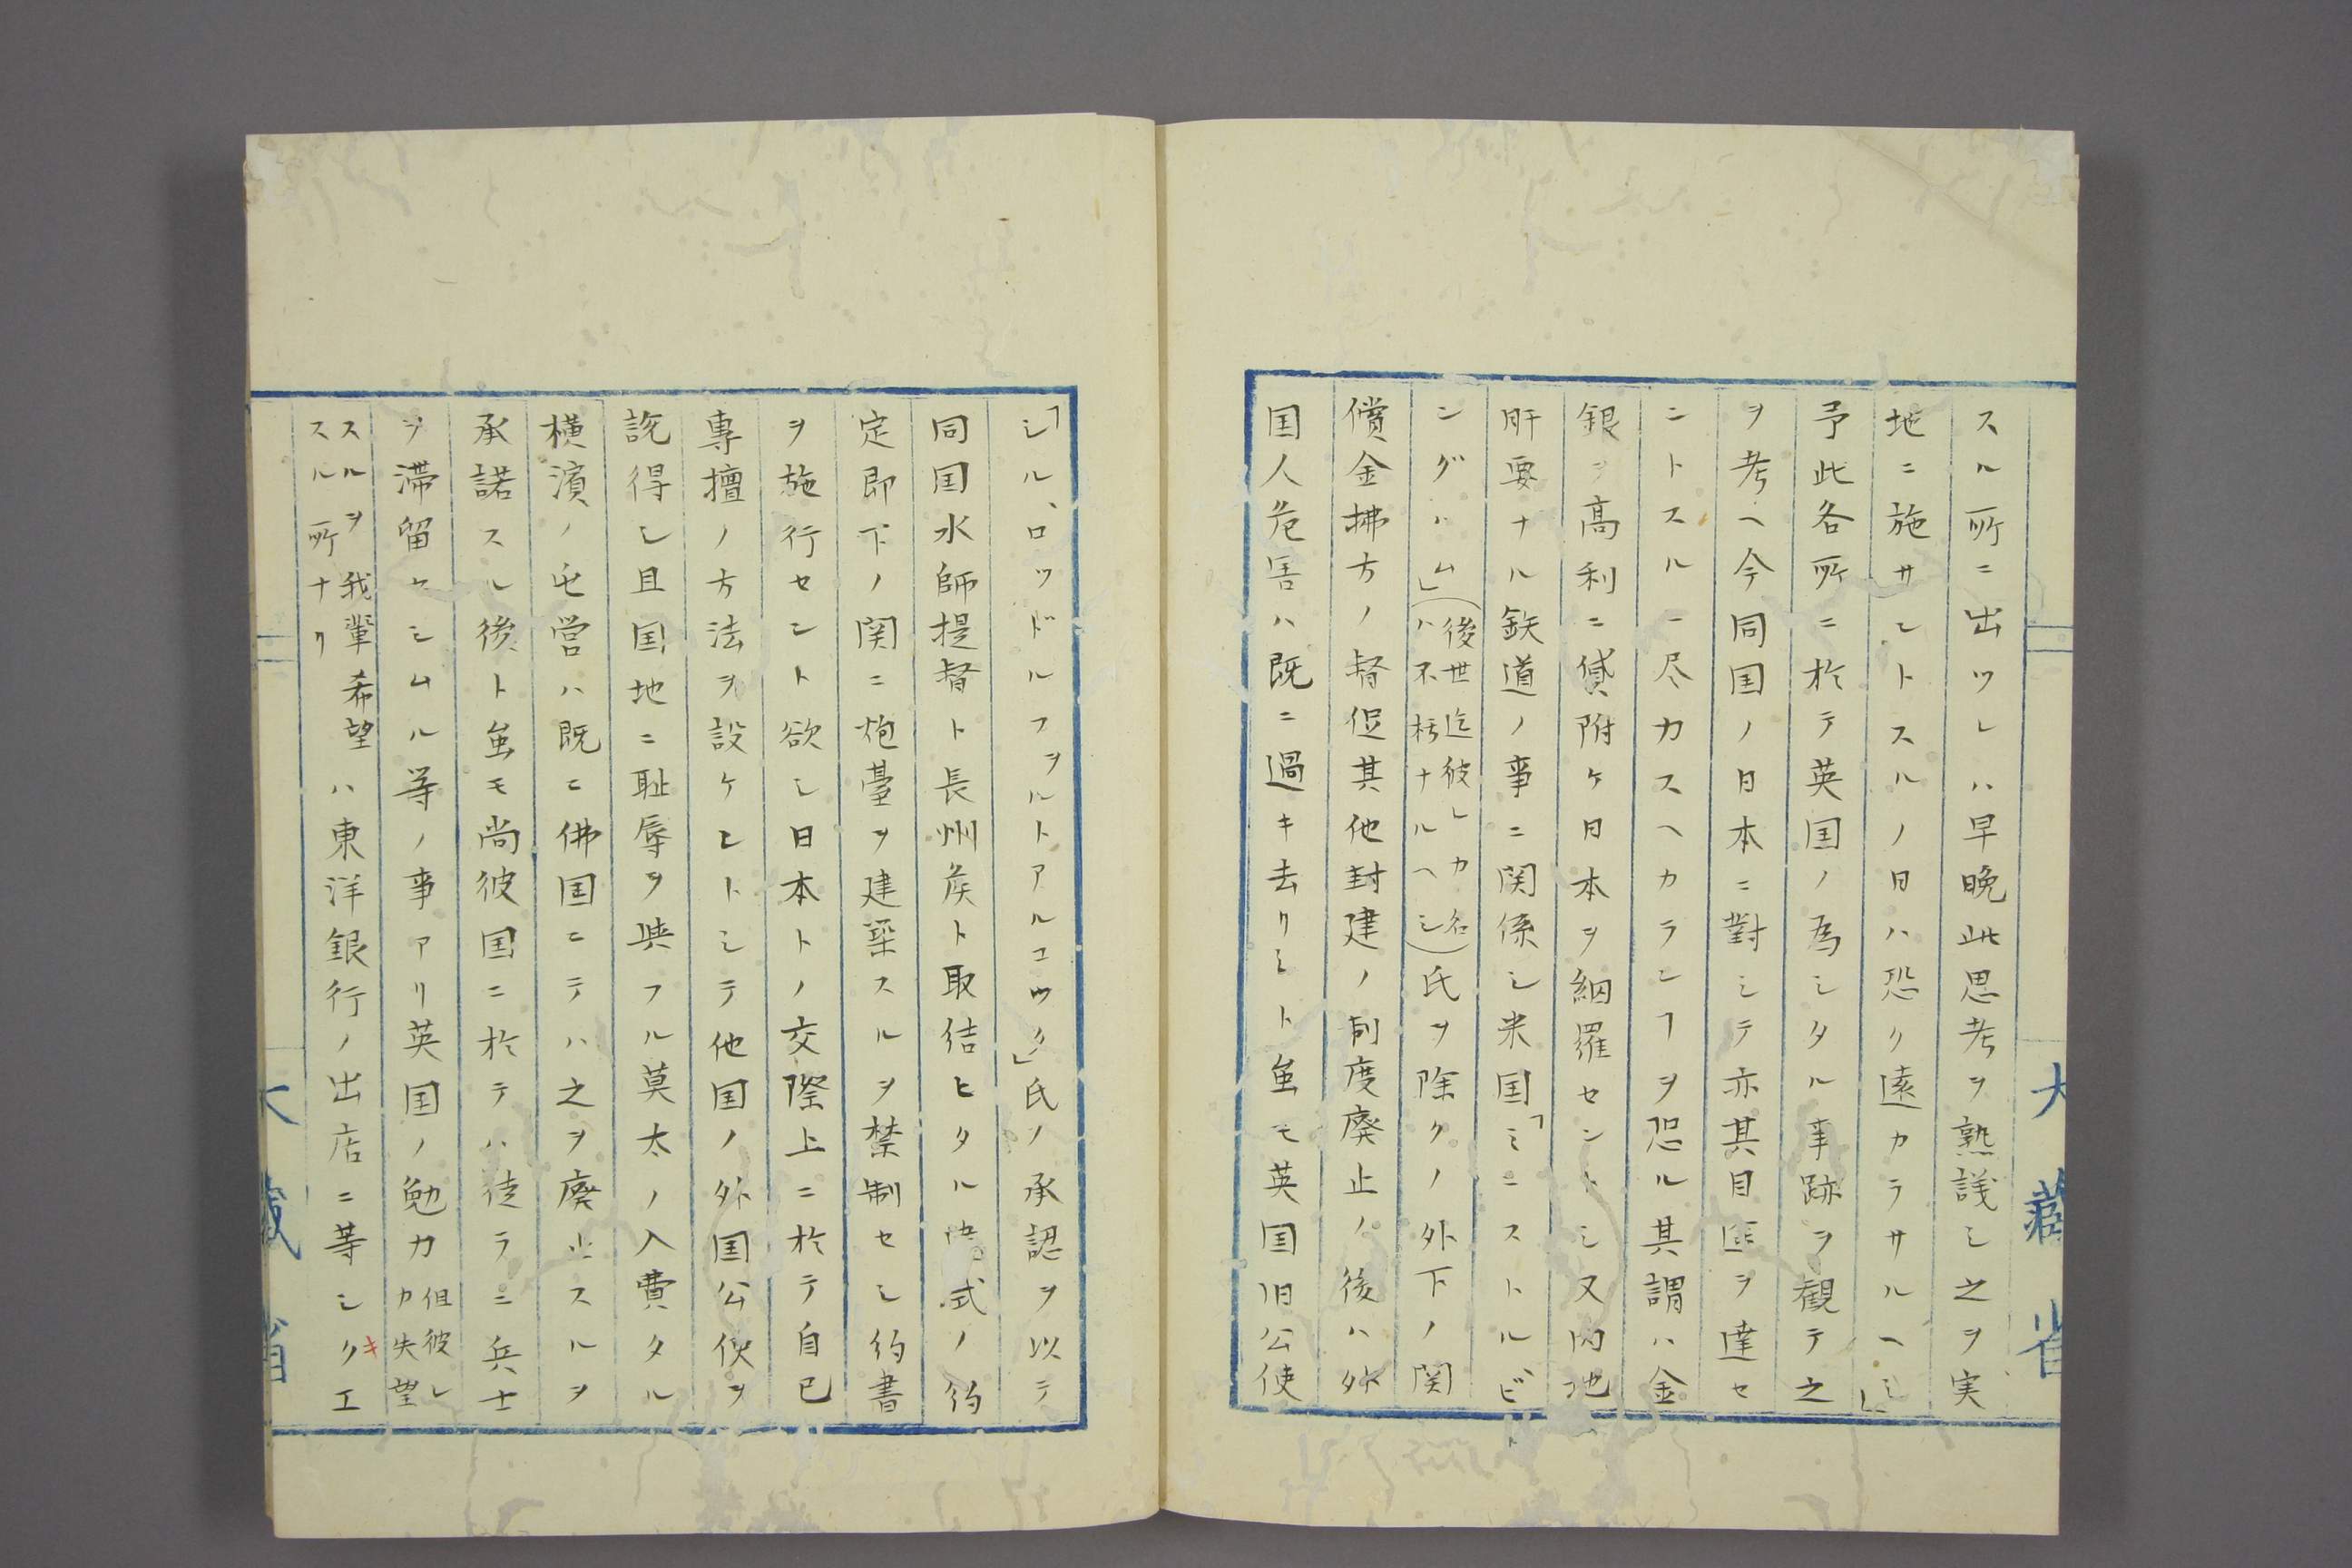 スル所ニ出ツレハ早晩此思考ヲ熟議シ之ヲ実
地ニ施サントスルノ日ハ恐ク遠カラサルヘシ」
予此各所ニ於テ英国ノ為シタル事跡ヲ観テ之
ヲ考ヘ今同国ノ日本ニ對シテ亦其目的ヲ達セ
ントスルニ尽力スヘカランヿヲ恐ル其謂ハ金
銀ヲ高利ニ貸附ケ日本ヲ網羅セントシ又内地
肝要ナル鉄道ノ事ニ関係シ米国「ミニストル、ビ
ングハム」(後世迄彼レカ名
ハ不朽ナルヘシ)氏ヲ除クノ外下ノ関
償金拂方ノ督促其他封建ノ制度廃止ノ後ハ外
国人危害ハ既ニ過キ去リシト虽モ英国旧公使
「シル、ロッドルフヲルトアルコック」氏ノ承認ヲ以テ
同国水師提督ト長州侯ト取結ヒタル式ノ約
定即下ノ関ニ炮臺ヲ建築スルヲ禁制セシ約書
ヲ施行セント欲シ日本トノ交際上ニ於テ自己
專擅ノ方法ヲ設ケントシテ他国ノ外国公使ヲ
説得シ且国地ニ耻辱ヲ與フル莫太ノ入費タル
横濱ノ屯営ハ既ニ佛国ニテハ之ヲ廃止スルヲ
承諾スル後ト虽モ尚彼国ニ於テハ徒ラニ兵士
ヲ滞留セシムル等ノ事アリ英国ノ勉力但彼レ
カ失望
スルヲ我輩希望
スル所ナリハ東洋銀行ノ出店ニ等シクキエ
大藏省
大藏省